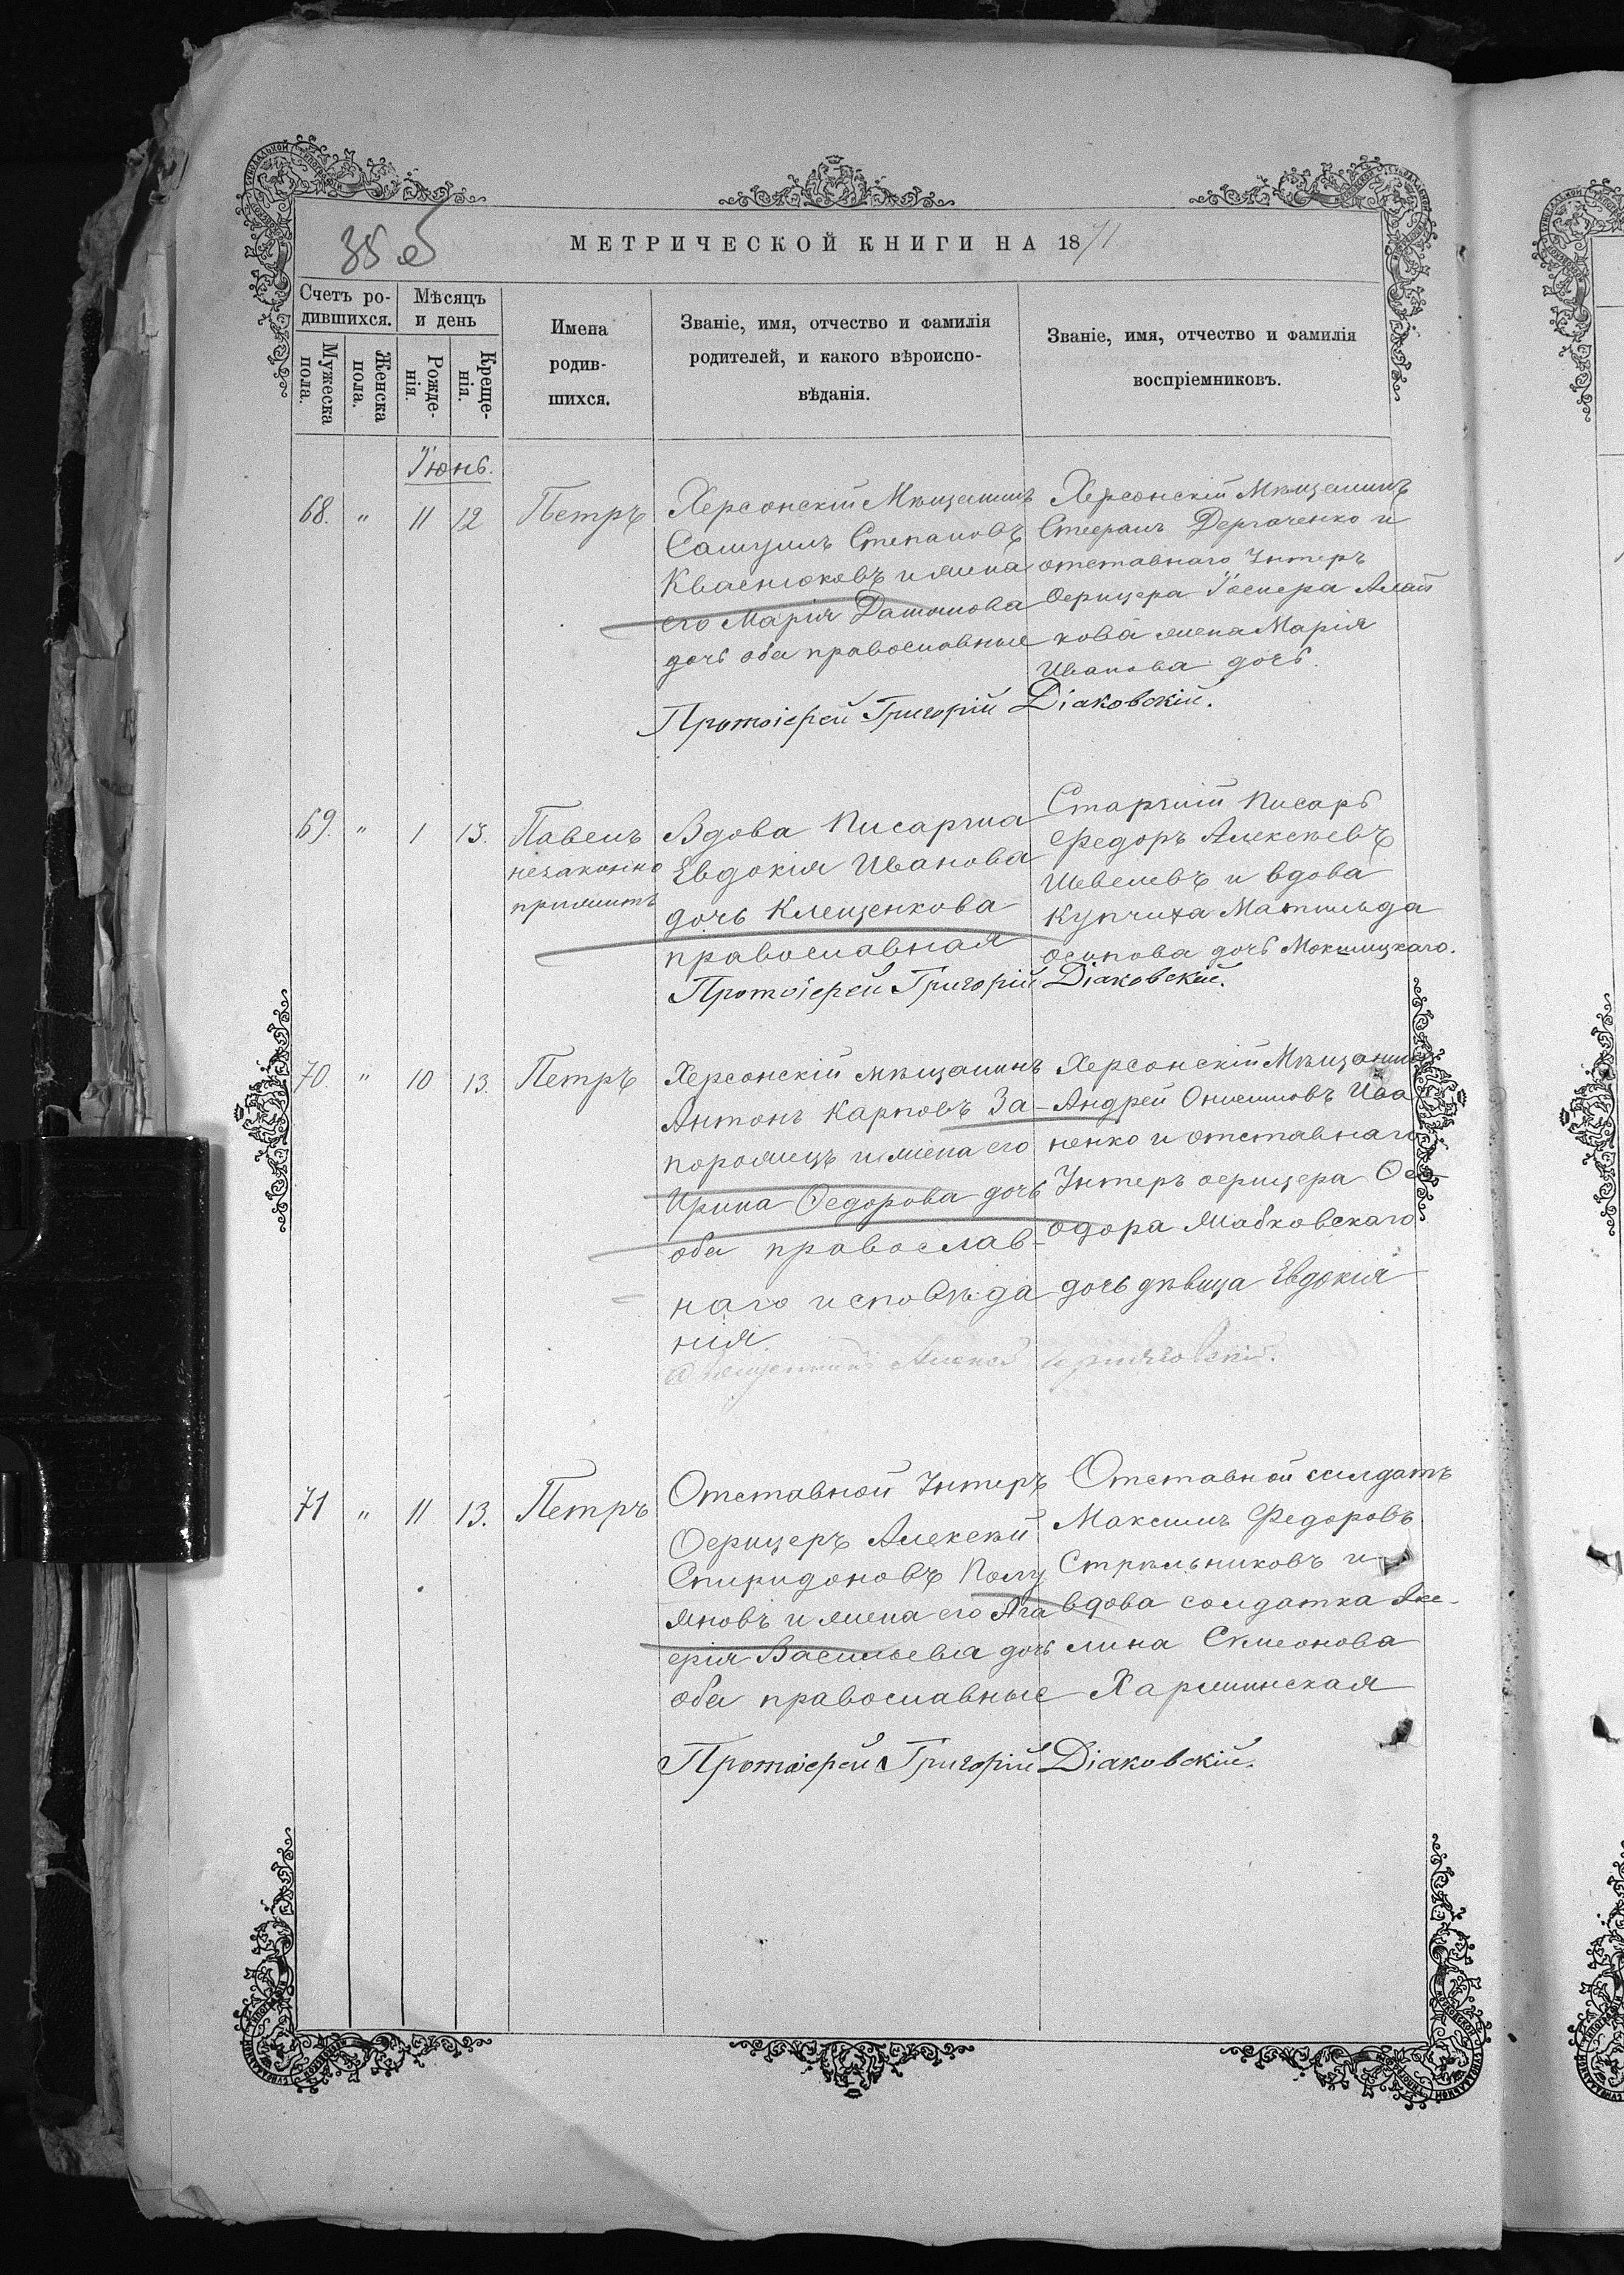 38 об
МЕТРИЧЕСКОЙ КНИГИ НА 1871
Счетъ ро-
дившихся.
Мужеска
пола.
Женска
пола.
Мѣсяцъ
и день
Рожде-
нія.
Креще-
нія.
Имена
родив-
шихся.
Званіе, имя, отчество и фамилія
родителей, и какого вѣроиспо-
вѣданія.
Званіе, имя, отчество и фамилія
воспріемниковъ.
Іюнь.
68. " 11 12 Петръ
Херсонскій Мѣщанинъ
Самуилъ Степановъ
Квасниковъ и жена
его Марія Даміанова
дочь оба православные
Херсонскій Мѣщанинъ
Стефанъ Дергаченко и
отставнаго Унтеръ
Офицера Іосифа
кова жена Марія
Иванова дочь.
Протоіерей Григорій Діаковскій.
69. " 1 13. Павелъ
незаконно
прижитъ
Вдова Писарша
Евдокія Иванова
дочь Клещенкова
православная
Старшій Писарь
Федоръ Алексѣевъ
Шевелевъ и вдова
Купчиха Матильда
Осипова дочь Мокшицкаго.
Протоіерей Григорій Діаковскій.
70. " 10 13. Петръ
Херсонскій мѣщанинъ
Антонъ Карповъ За-
порожецъ и жена его
Ирина Федорова дочь
оба православ-
наго исповѣда
нія
Херсонскій Мѣщанинъ
Андрей Онисимовъ Ива
ненко и отставнаго
Унтеръ офицера Ѳе-
одора Жабковскаго
дочь дѣвица Евдокія
Священникъ Алексѣй
71 " 11 13. Петръ
Отставной Унтеръ
Офицеръ Алексѣй
Спиридоновъ Полу
яновъ и жена его Ага
фія Васильева дочь
оба православные
Отставной солдатъ
Максимъ Федоровъ
Стрѣльниковъ и
вдова солдатка Аке-
лина Симеонова
Харжинская
Протоіерей Григорій Діаковскій.